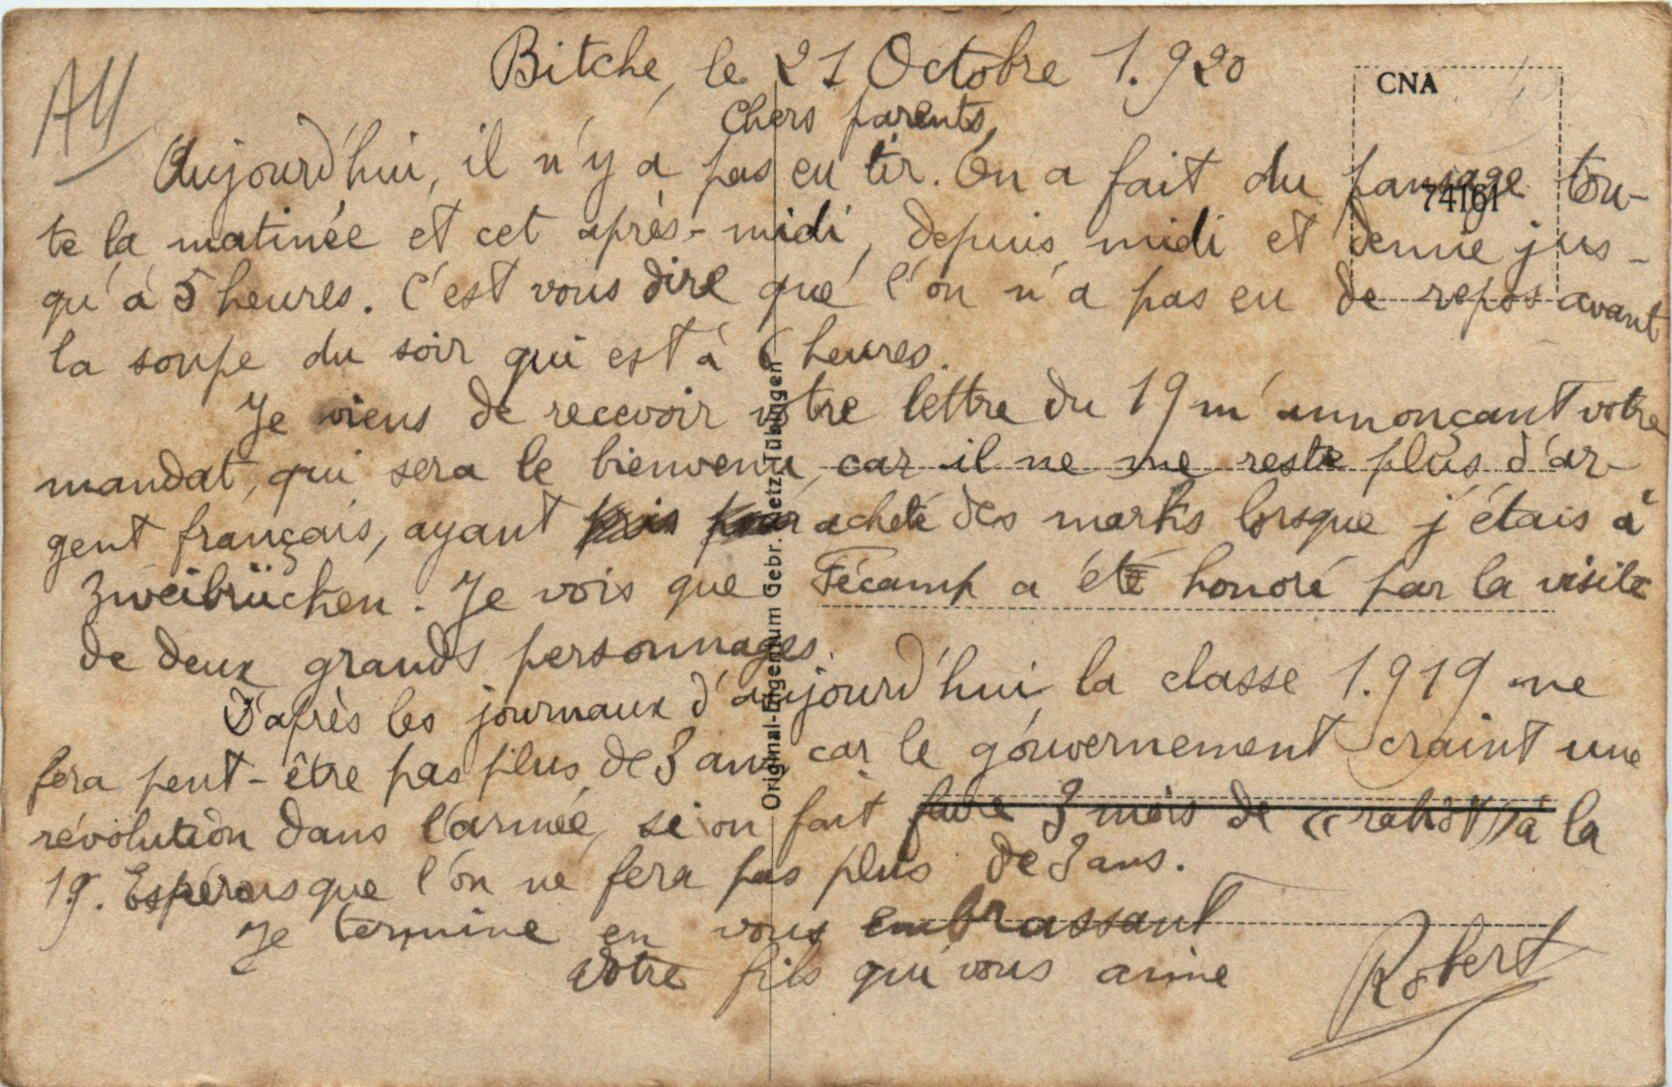 A4
Bitche, le 21 Octobre 1.920
CNA
74161
Chers parents,
Aujourd'hui, il n'y a pas eu tir. On a fait du pansage tou-
te la matinée et cet après-midi, depuis midi et demie jus-
qu'à 5 heures. C'est vous dire que l'on n'a pas eu de repos avant
la soupe du soir qui est à 6 heures.
Je viens de recevoir votre lettre du 19 m'annonçant votre
mandat, qui sera le bienvenu, car il ne me reste plus d'ar-
gent français, ayant pris pour acheté des marks lorsque j'étais à
Zweibrücken. Je vois que Fécamp a été honoré par la visite
de deux grands personnages.
D'après les journaux d'aujourd'hui, la classe 1.919 ne
fera peut-être pas plus de 3 ans car le gouvernement craint une
révolution dans l'armée, si on fait faire 3 mois de « rabiot » à la
19. Espérons que l'on ne fera pas plus de 3 ans.
Je termine en vous embrassant
Votre fils qui vous aime
Robert
Original-Eigentum Gebr. Metz, Tübingen